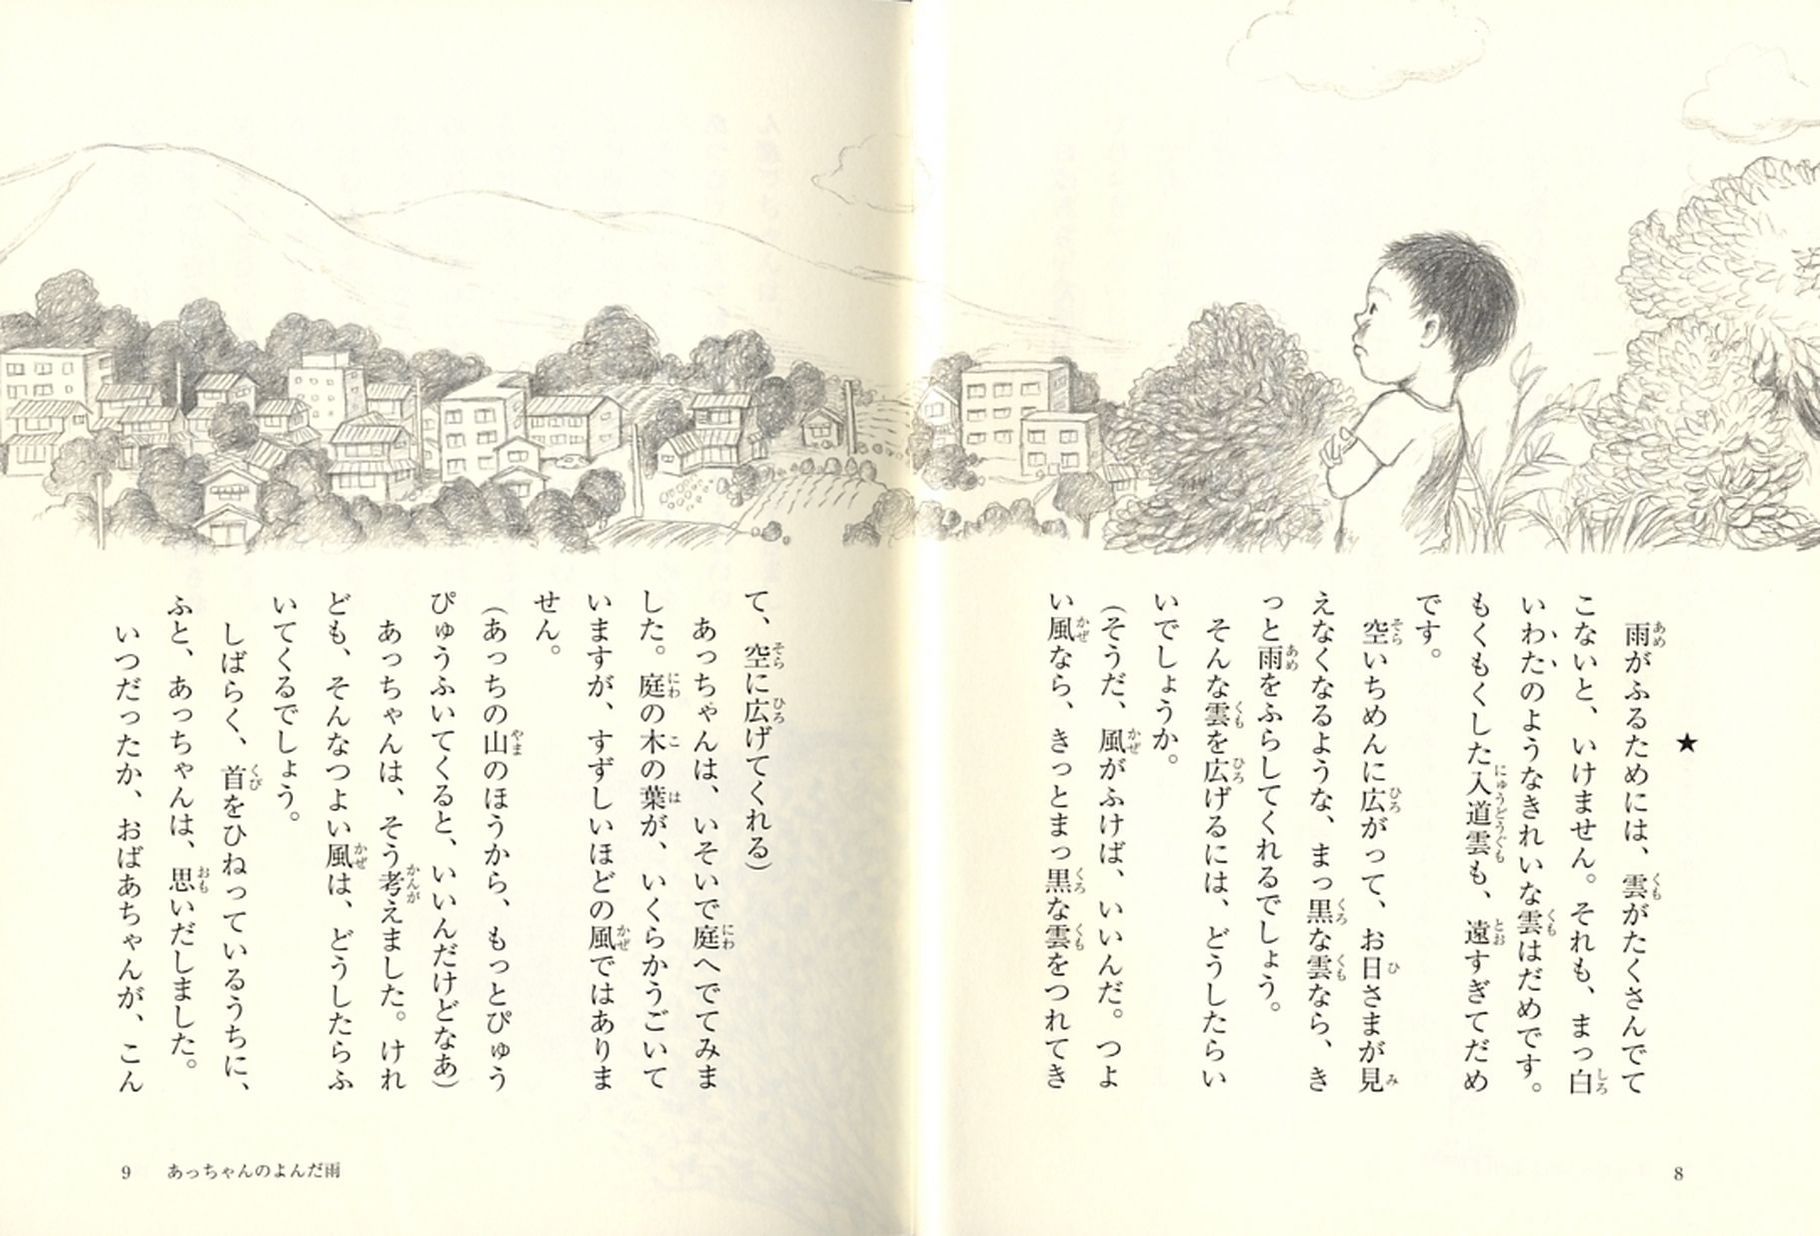 ★
雨がふるためには、雲がたくさんでて
こないと、いけません。それも、まっ白
いわたのようなきれいな雲はだめです。
もくもくした入道雲も、遠すぎてだめ
です。
空いちめんに広がって、お日さまが見
えなくなるような、まっ黒な雲なら、き
っと雨をふらしてくれるでしょう。
そんな雲を広げるには、どうしたらい
いでしょうか。
(そうだ、風がふけば、いいんだ。つよ
い風なら、きっとまっ黒な雲をつれてき
8
て、空に広げてくれる)
あっちゃんは、いそいで庭へでてみま
した。庭の木の葉が、いくらかうごいて
いますが、すずしいほどの風ではありま
せん。
(あっちの山のほうから、もっとぴゅう
ぴゅうふいてくると、いいんだけどなあ)
あっちゃんは、そう考えました。けれ
ども、そんなつよい風は、どうしたらふ
いてくるでしょう。
しばらく、首をひねっているうちに、
ふと、あっちゃんは、思いだしました。
いつだったか、おばあちゃんが、こん
9 あっちゃんのよんだ雨